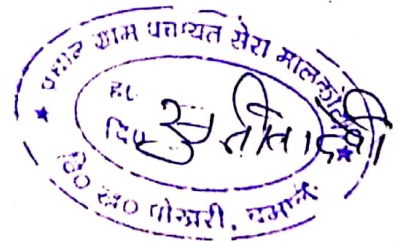 प्रधान ग्राम पंचायत सेरा मालकोटी
ह०
दि०
सुनीता देवी
वि० ख० पोखरी, चमोली